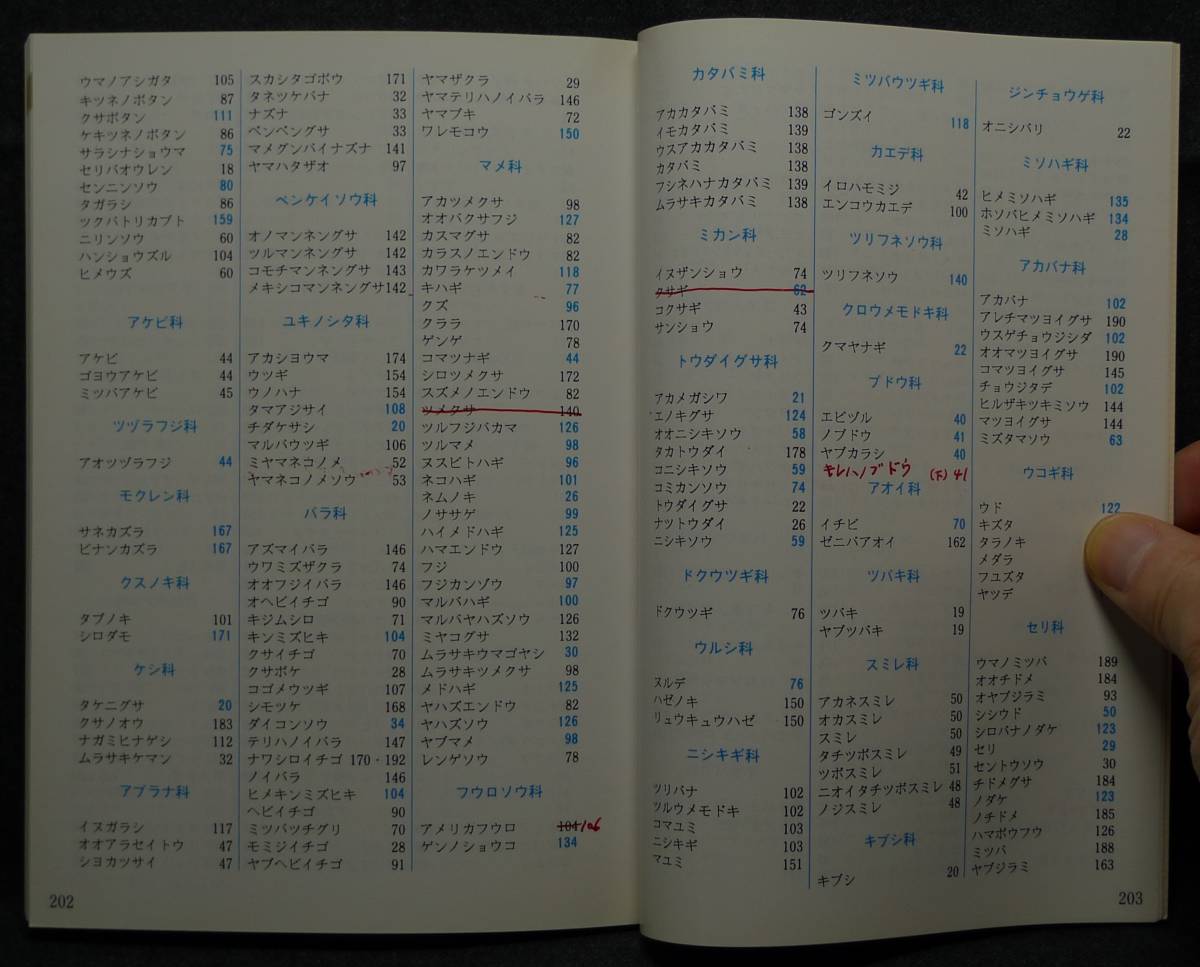 ウマノアシガタ 105
キツネノボタン 87
クサボタン 111
ケキツネノボタン 86
サラシナショウマ 75
セリバオウレン 18
センニンソウ 80
タガラシ 86
ツクバトリカブト 159
ニリンソウ 60
ハンショウヅル 104
ヒメウズ 60
アケビ科
アケビ 44
ゴヨウアケビ 44
ミツバアケビ 45
ツヅラフジ科
アオツヅラフジ 44
モクレン科
サネカズラ 167
ビナンカズラ 167
クスノキ科
タブノキ 101
シロダモ 171
ケシ科
タケニグサ 20
クサノオウ 183
ナガミヒナゲシ 112
ムラサキケマン 32
アブラナ科
イヌガラシ 117
オオアラセイトウ 47
ショカツサイ 47
スカシタゴボウ 171
タネツケバナ 32
ナズナ 33
ペンペングサ 33
マメグンバイナズナ 141
ヤマハタザオ 97
ベンケイソウ科
オノマンネングサ 142
ツルマンネングサ 142
コモチマンネングサ 143
メキシコマンネングサ 142
ユキノシタ科
アカショウマ 174
ウツギ 154
ウノハナ 154
タマアジサイ 108
チダケサシ 20
マルバウツギ 106
ミヤマネコノメ 52
ヤマネコノメソウ 53
バラ科
アズマイバラ 146
ウワミズザクラ 74
オオフジイバラ 146
オヘビイチゴ 90
キジムシロ 71
キンミズヒキ 104
クサイチゴ 70
クサボケ 28
コゴメウツギ 107
シモツケ 168
ダイコンソウ 34
テリハノイバラ 147
ナワシロイチゴ 170・192
ノイバラ 146
ヒメキンミズヒキ 104
ヘビイチゴ 90
ミツバツチグリ 70
モミジイチゴ 28
ヤブヘビイチゴ 91
ヤマザクラ 29
ヤマテリハノイバラ 146
ヤマブキ 72
ワレモコウ 150
マメ科
アカツメクサ 98
オオバクサフジ 127
カスマグサ 82
カラスノエンドウ 82
カワラケツメイ 118
キハギ 77
クズ 96
クララ 170
ゲンゲ 78
コマツナギ 44
シロツメクサ 172
スズメノエンドウ 82
ツメクサ 140
ツルフジバカマ 126
ツルマメ 98
ヌスビトハギ 96
ネコハギ 101
ネムノキ 26
ノササゲ 99
ハイメドハギ 125
ハマエンドウ 127
フジ 100
フジカンゾウ 97
マルバハギ 100
マルバヤハズソウ 126
ミヤコグサ 132
ムラサキウマゴヤシ 30
ムラサキツメクサ 98
メドハギ 125
ヤハズエンドウ 82
ヤハズソウ 126
ヤブマメ 98
レンゲソウ 78
フウロソウ科
アメリカフウロ 104 106
ゲンノショウコ 134
202
カタバミ科
アカカタバミ 138
イモカタバミ 139
ウスアカカタバミ 138
カタバミ 138
フシネハナカタバミ 139
ムラサキカタバミ 138
ミカン科
イヌザンショウ 74
クサギ 62
コクサギ 43
サンショウ 74
トウダイグサ科
アカメガシワ 21
エノキグサ 124
オオニシキソウ 58
タカトウダイ 178
コニシキソウ 59
コミカンソウ 74
トウダイグサ 22
ナツトウダイ 26
ニシキソウ 59
ドクウツギ科
ドクウツギ 76
ウルシ科
ヌルデ 76
ハゼノキ 150
リュウキュウハゼ 150
ニシキギ科
ツリバナ 102
ツルウメモドキ 102
コマユミ 103
ニシキギ 103
マユミ 151
ミツバウツギ科
ゴンズイ 118
カエデ科
イロハモミジ 42
エンコウカエデ 100
ツリフネソウ科
ツリフネソウ 140
クロウメモドキ科
クマヤナギ 22
ブドウ科
エビヅル 40
ノブドウ 41
ヤブカラシ 40
キレハノブドウ (下) 41
アオイ科
イチビ 70
ゼニバアオイ 162
ツバキ科
ツバキ 19
ヤブツバキ 19
スミレ科
アカネスミレ 50
オカスミレ 50
スミレ 50
タチツボスミレ 49
ツボスミレ 51
ニオイタチツボスミレ 48
ノジスミレ 48
キブシ科
キブシ 20
ジンチョウゲ科
オニシバリ 22
ミソハギ科
ヒメミソハギ 135
ホソバヒメミソハギ 134
ミソハギ 28
アカバナ科
アカバナ 102
アレチマツヨイグサ 190
ウスゲチョウジシダ 102
オオマツヨイグサ 190
コマツヨイグサ 145
チョウジタデ 102
ヒルザキツキミソウ 144
マツヨイグサ 144
ミズタマソウ 63
ウコギ科
ウド 122
キズタ
タラノキ
メダラ
フユズタ
ヤツデ
セリ科
ウマノミツバ 189
オオチドメ 184
オヤブジラミ 93
シシウド 50
シロバナノダケ 123
セリ 29
セントウソウ 30
チドメグサ 184
ノダケ 123
ノチドメ 185
ハマボウフウ 126
ミツバ 188
ヤブジラミ 163
203